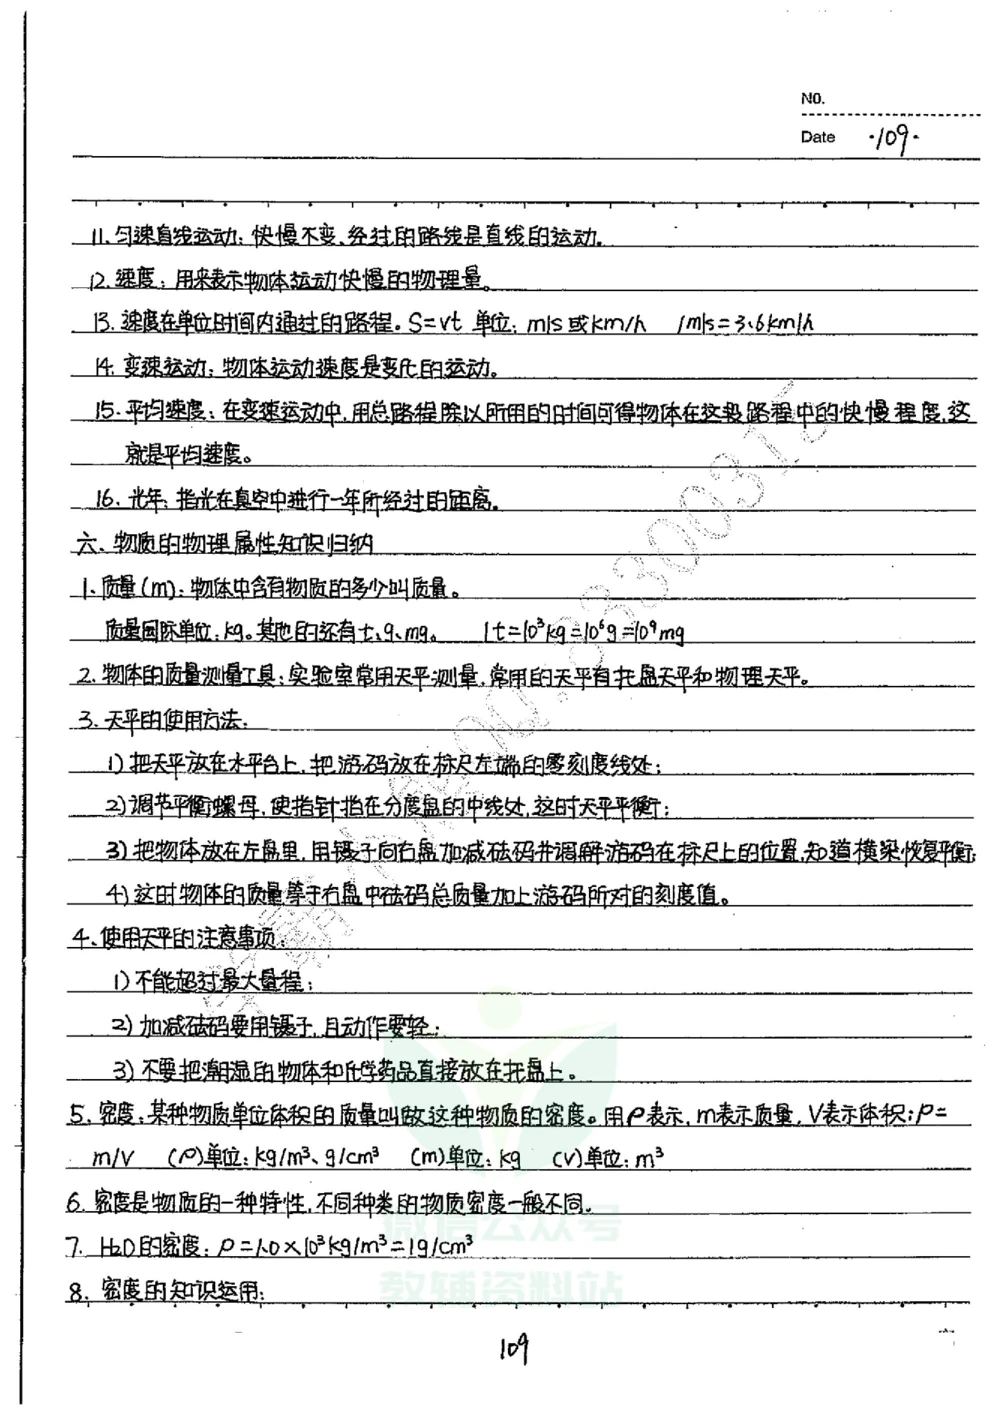 NO.
Date ·109·
11.匀速直线运动:快慢不变、经过的路线是直线的运动。
12.速度:用来表示物体运动快慢的物理量。
13.速度在单位时间内通过的路程。S=vt 单位:m/s或km/h 1m/s=3.6km/h
14.变速运动:物体运动速度是变化的运动。
15.平均速度:在变速运动中,用总路程除以所用的时间可得物体在这段路程中的快慢程度,这
就是平均速度。
16.光年:指光在真空中进行一年所经过的距离。
六、物质的物理属性知识归纳
1.质量(m):物体中含有物质的多少叫质量。
质量国际单位:kg。其他的还有t、g、mg。 1t=10³kg=10⁶g=10⁹mg
2.物体的质量测量工具:实验室常用天平测量,常用的天平有托盘天平和物理天平。
3.天平的使用方法:
1)把天平放在水平台上,把游码放在标尺左端的零刻度线处;
2)调节平衡螺母,使指针指在分度盘的中线处,这时天平平衡;
3)把物体放在左盘里,用镊子向右盘加减砝码并调解游码在标尺上的位置,知道横梁恢复平衡;
4)这时物体的质量等于右盘中砝码总质量加上游码所对的刻度值。
4、使用天平的注意事项:
1)不能超过最大量程;
2)加减砝码要用镊子,且动作要轻;
3)不要把潮湿的物体和化学药品直接放在托盘上。
5.密度:某种物质单位体积的质量叫做这种物质的密度。用ρ表示,m表示质量,V表示体积:ρ=
m/V (ρ)单位:kg/m³、g/cm³ (m)单位:kg (v)单位:m³
6.密度是物质的一种特性,不同种类的物质密度一般不同。
7. H2O的密度:ρ=1.0×10³kg/m³=1g/cm³
8.密度的知识运用:
微信公众号
教辅资料站
109